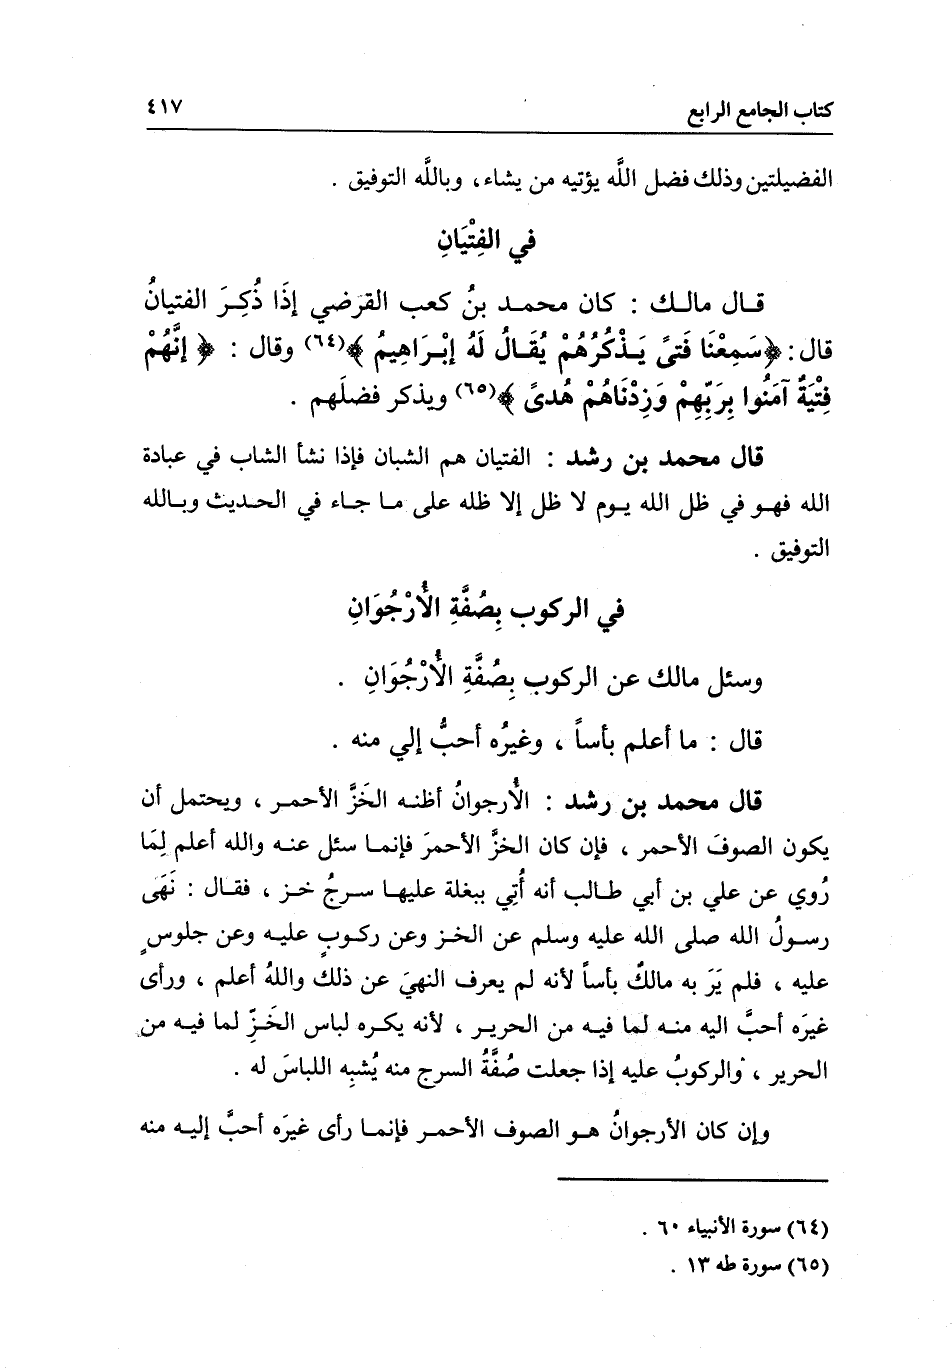 كتاب الجامع الرابع ٤١٧
الفضيلتين وذلك فضل اللَّه يؤتيه من يشاء ، وباللَّه التوفيق .
في الفِتْيَانِ
قال مالك : كان محمد بنُ كعب القرضي إذَا ذُكِرَ الفتيانُ
قال : ﴿ سَمِعْنَا فَتىً يَذْكُرُهُمْ يُقَالُ لَهُ إبْرَاهِيمُ ﴾(٦٤) وقال : ﴿ إنَّهُمْ
فِتْيَةٌ آمَنُوا بِرَبِّهِمْ وَزِدْنَاهُمْ هُدىً ﴾(٦٥) ويذكر فضلَهم .
قال محمد بن رشد : الفتيان هم الشبان فإذا نشأ الشاب في عبادة
الله فهو في ظل الله يوم لا ظل إلا ظله على ما جاء في الحديث وبالله
التوفيق .
في الركوب بِصُفَّةِ الأُرْجُوَانِ
وسئل مالك عن الركوب بِصُفَّةِ الأُرْجُوَانِ .
قال : ما أعلم بأساً ، وغيرُه أحبُّ إلي منه .
قال محمد بن رشد : الأُرجوانُ أظنه الخَزَّ الأحمر ، ويحتمل أن
يكون الصوفَ الأحمر ، فإن كان الخزَّ الأحمرَ فإنما سئل عنه والله أعلم لِمَا
رُوي عن علي بن أبي طالب أنه أُتِي ببغلة عليها سرجُ خز ، فقال : نَهَى
رسولُ الله صلى الله عليه وسلم عن الخز وعن ركوبٍ عليه وعن جلوسٍ
عليه ، فلم يَرَ به مالكٌ بأساً لأنه لم يعرف النهيَ عن ذلك واللهُ أعلم ، ورأى
غيرَه أحبَّ اليه منه لما فيه من الحرير ، لأنه يكره لباس الخَزِّ لما فيه من
الحرير ، والركوبُ عليه إذا جعلت صُفَّةُ السرج منه يُشبِه اللباسَ له .
وإن كان الأرجوانُ هو الصوف الأحمر فإنما رأى غيرَه أحبَّ إليه منه
(٦٤) سورة الأنبياء ٦٠ .
(٦٥) سورة طه ١٣ .